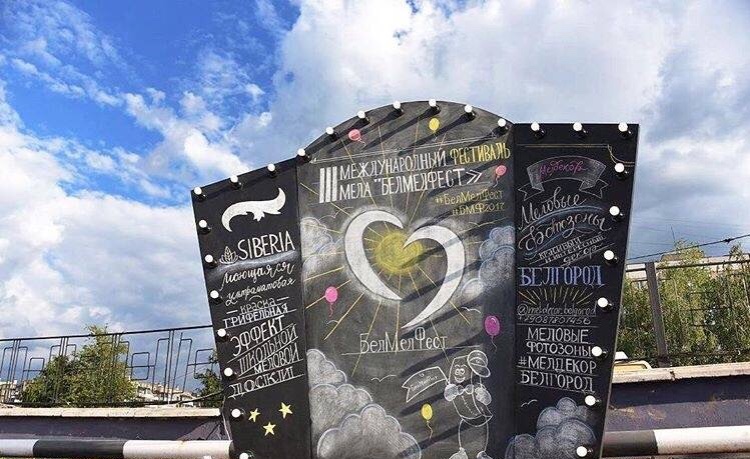 SIBERIA
Моющаяся
ультраматовая
краска
ГРИФЕЛЬНАЯ
ЭФФЕКТ
ШКОЛЬНОЙ
МЕЛОВОЙ
ДОСКИ!
III МЕЖДУНАРОДНЫЙ ФЕСТИВАЛЬ
МЕЛА "БЕЛМЕЛФЕСТ"
#БелМелФест
#БМФ2017
БелМелФест
Мелдекор
Меловые
Фотозоны
БЕЛГОРОД
МЕЛОВЫЕ
ФОТОЗОНЫ
#МЕЛДЕКОР
БЕЛГОРОД